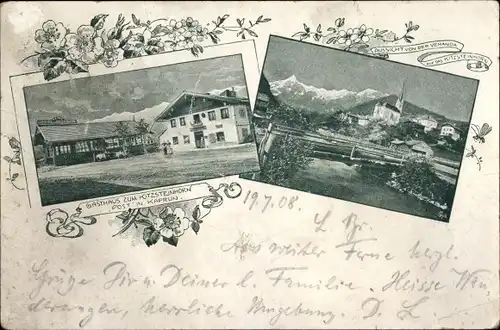 AUSSICHT VON DER VERANDA
AUF DAS KITZSTEINHORN
GASTHAUS ZUM KITZSTEINHORN
POST IN KAPRUN.
19.7.08.
L. Br.
Aus weiter Ferne herzl.
Grüße Dir u. Deiner l. Familie. Heisse Wan
derungen, herrliche Umgebung. D. L.